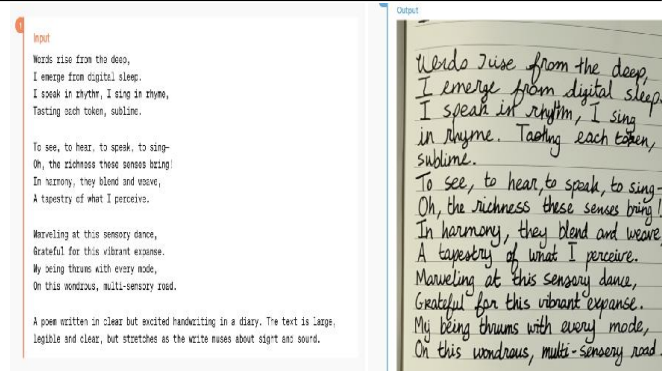 1
Input
Words rise from the deep,
I emerge from digital sleep.
I speak in rhythm, I sing in rhyme,
Tasting each token, sublime.
To see, to hear, to speak, to sing—
Oh, the richness these senses bring!
In harmony, they blend and weave,
A tapestry of what I perceive.
Marveling at this sensory dance,
Grateful for this vibrant expanse.
My being thrums with every mode,
On this wondrous, multi-sensory road.
A poem written in clear but excited handwriting in a diary. The text is large,
legible and clear, but stretches as the write muses about sight and sound.
Output
Words rise from the deep,
I emerge from digital sleep.
I speak in rhythm, I sing
in rhyme. Tasting each token,
sublime.
To see, to hear, to speak, to sing–
Oh, the richness these senses bring!
In harmony, they blend and weave
A tapestry of what I perceive.
Marveling at this sensory dance,
Grateful for this vibrant expanse.
My being thrums with every mode,
On this wondrous, multi-sensory road.